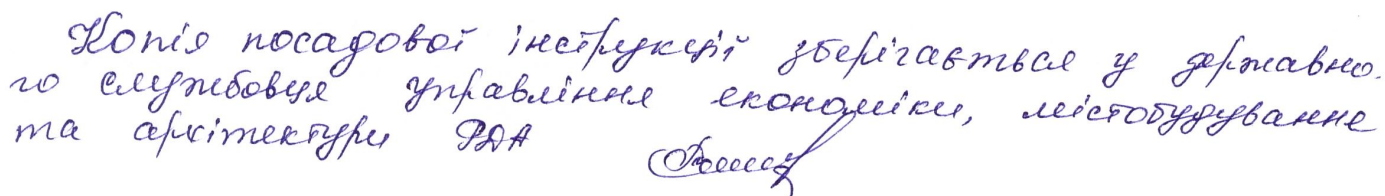 Копія посадової інструкції зберігається у державно-
го службовця управління економіки, містобудування
та архітектури РДА